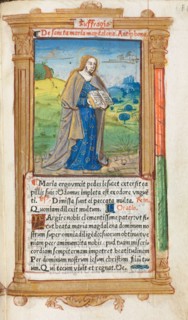 Suffragia
De sancta maria magdalena. Antiphona.
Maria ergo unxit pedes iesu et extersit ca
pillis suis et domus impleta est ex odore ungue
ti. Dimissa sunt ei peccata multa.
Quoniam dilexit multum. Oratio.
Largire nobis clementissime pater
beata maria magdalena dominum no
strum super omnia diligendo suorum obtinuit ve
niam peccaminum ita nobis apud tuam miseri
cordiam sempiternam impetret beatitudinem
Per dominum nostrum iesum christum filium tu
um. Qui tecum vivit et regnat. De